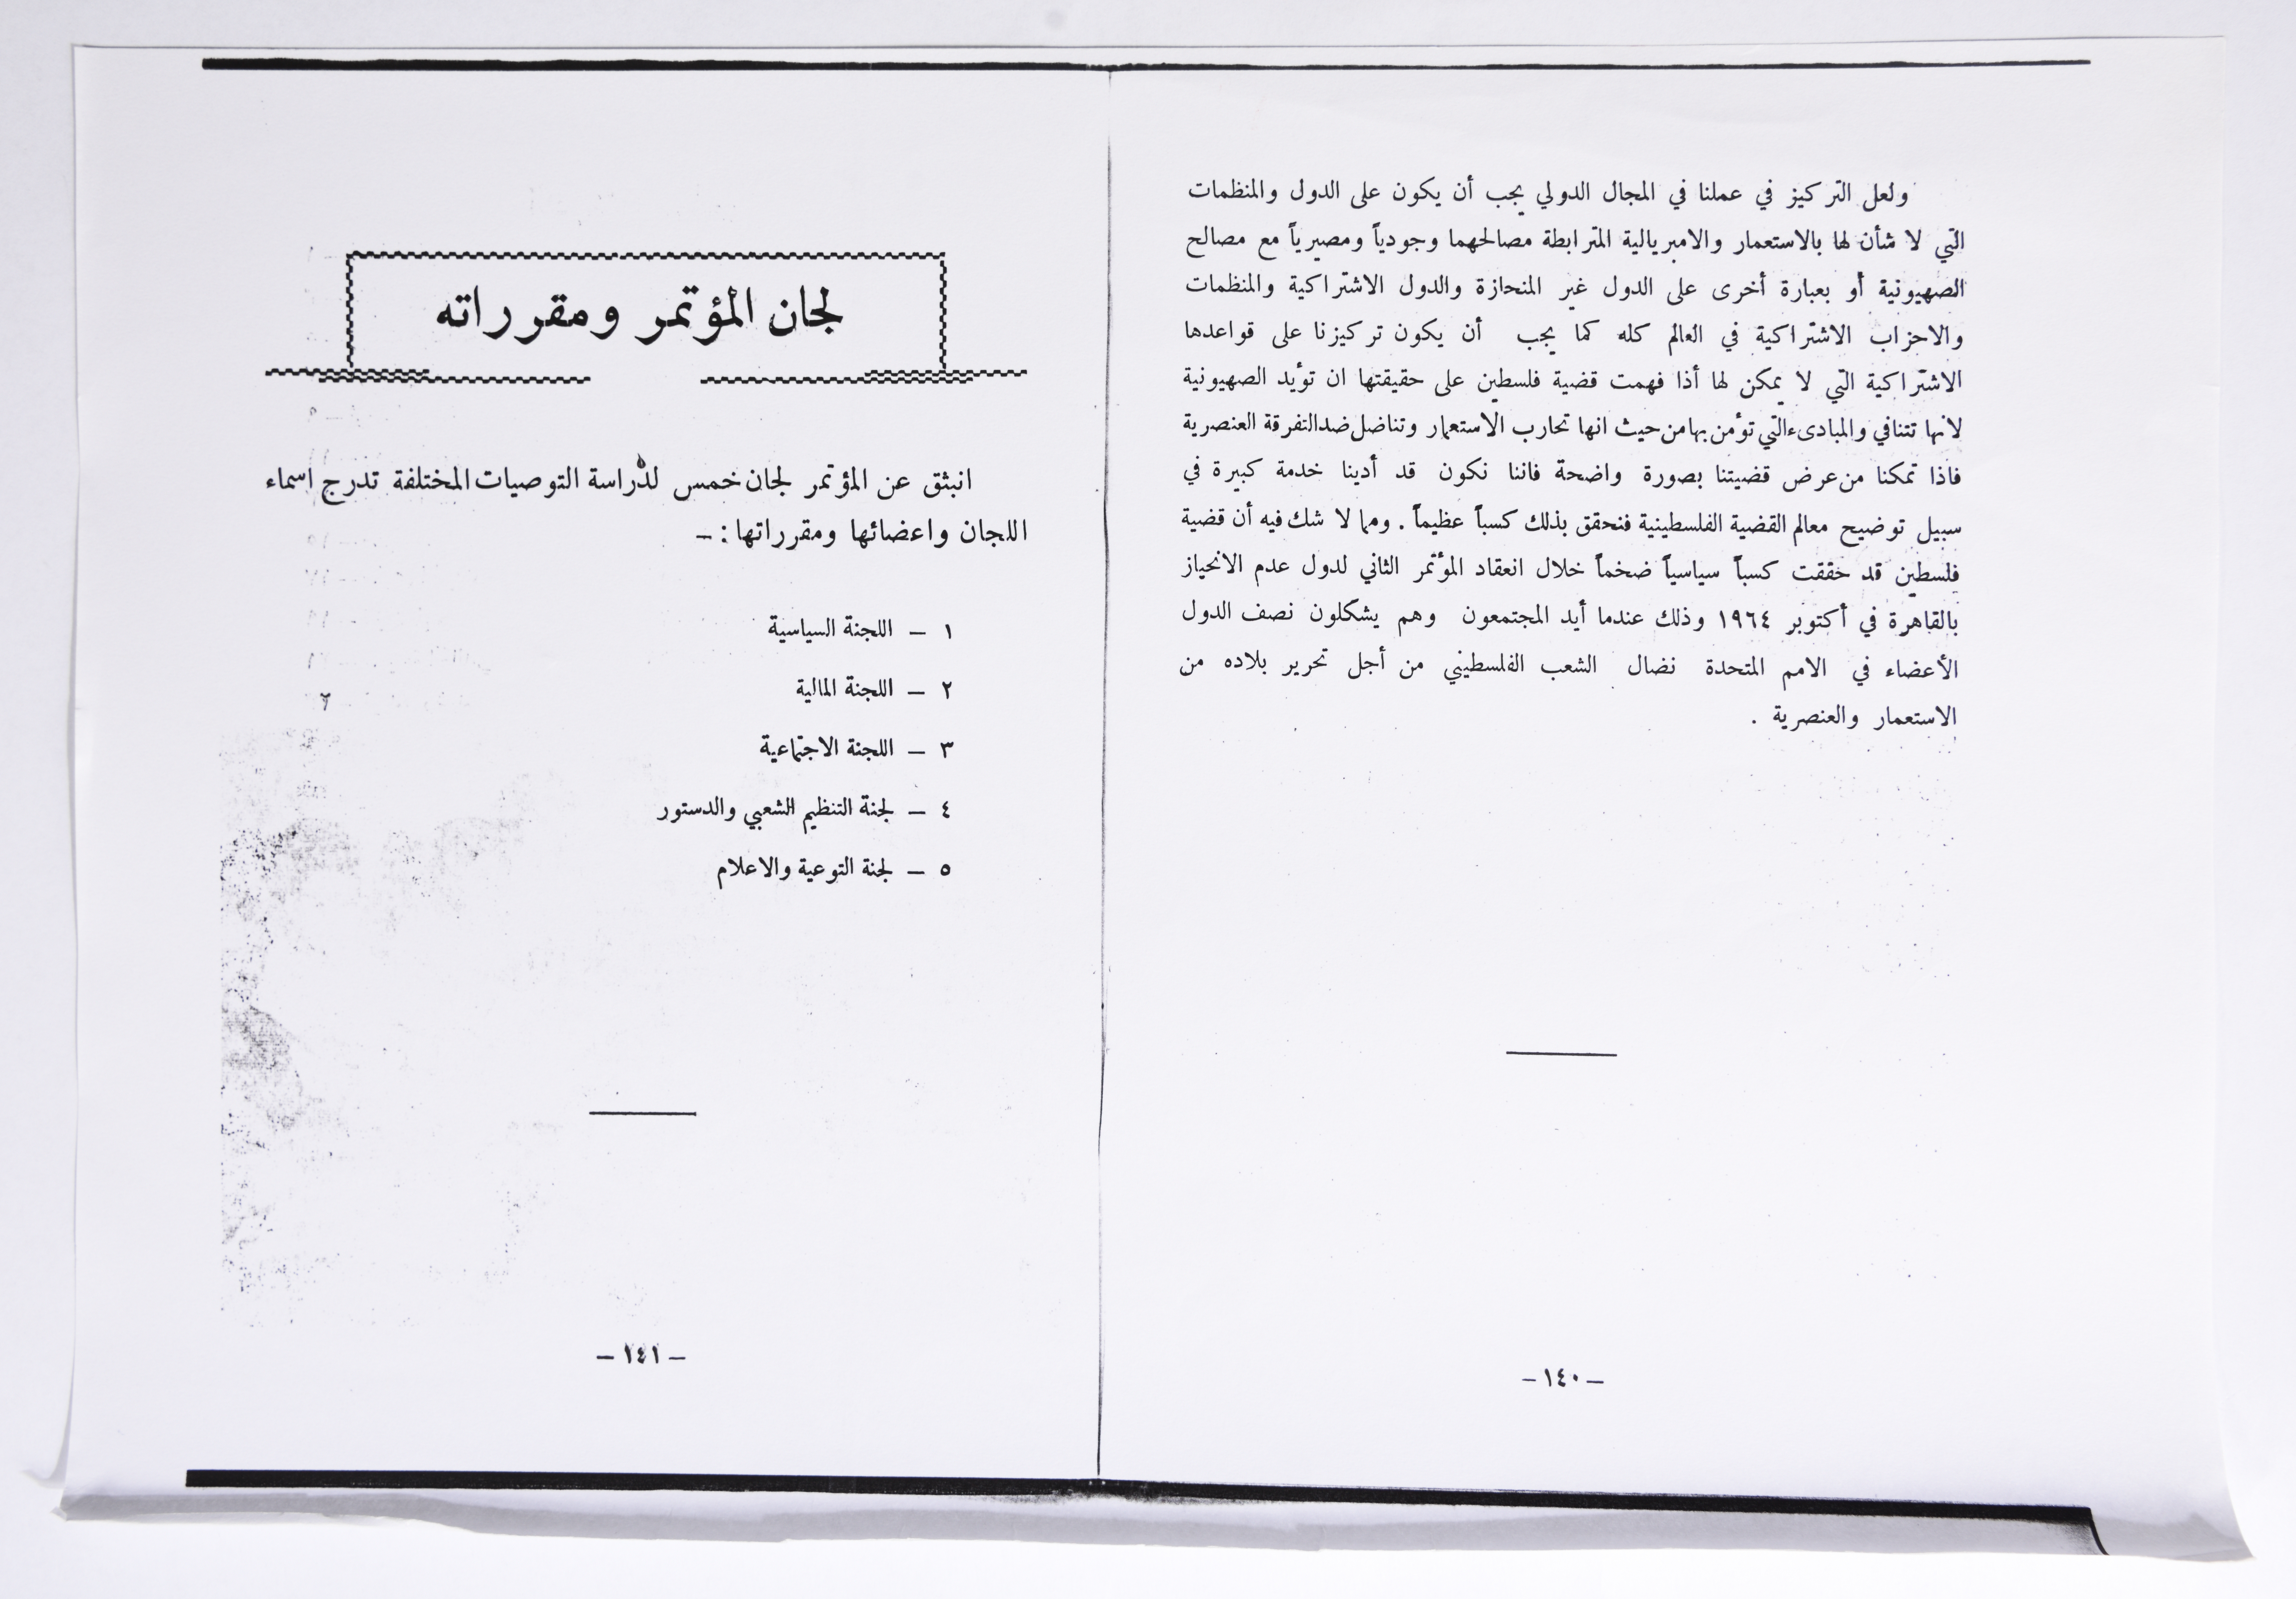 ولعل التركيز في عملنا في المجال الدولي يجب أن يكون على الدول والمنظمات
التي لا شأن لها بالاستعمار والامبريالية المترابطة مصالحهما وجودياً ومصيرياً مع مصالح
الصهيونية أو بعبارة أخرى على الدول غير المنحازة والدول الاشتراكية والمنظمات
والاحزاب الاشتراكية في العالم كله كما يجب أن يكون تركيزنا على قواعدها
الاشتراكية التي لا يمكن لها أذا فهمت قضية فلسطين على حقيقتها ان تؤيد الصهيونية
لانها تتنافي والمبادىء التي تؤمن بها من حيث انها تحارب الاستعمار وتناضل ضد التفرقة العنصرية
فاذا تمكنا من عرض قضيتنا بصورة واضحة فاننا نكون قد أدينا خدمة كبيرة في
سبيل توضيح معالم القضية الفلسطينية فنحقق بذلك كسباً عظيماً . ومما لا شك فيه أن قضية
فلسطين قد حققت كسباً سياسياً ضخماً خلال انعقاد المؤتمر الثاني لدول عدم الانحياز
بالقاهرة في أكتوبر ١٩٦٤ وذلك عندما أيد المجتمعون وهم يشكلون نصف الدول
الأعضاء في الامم المتحدة نضال الشعب الفلسطيني من أجل تحرير بلاده من
الاستعمار والعنصرية .
– ١٤٠ –
لجان المؤتمر ومقرراته
انبثق عن المؤتمر لجان خمس لدراسة التوصيات المختلفة تدرج اسماء
اللجان واعضائها ومقرراتها : –
١ – اللجنة السياسية
٢ – اللجنة المالية
٣ – اللجنة الاجتماعية
٤ – لجنة التنظيم الشعبي والدستور
٥ – لجنة التوعية والاعلام
– ١٤١ –